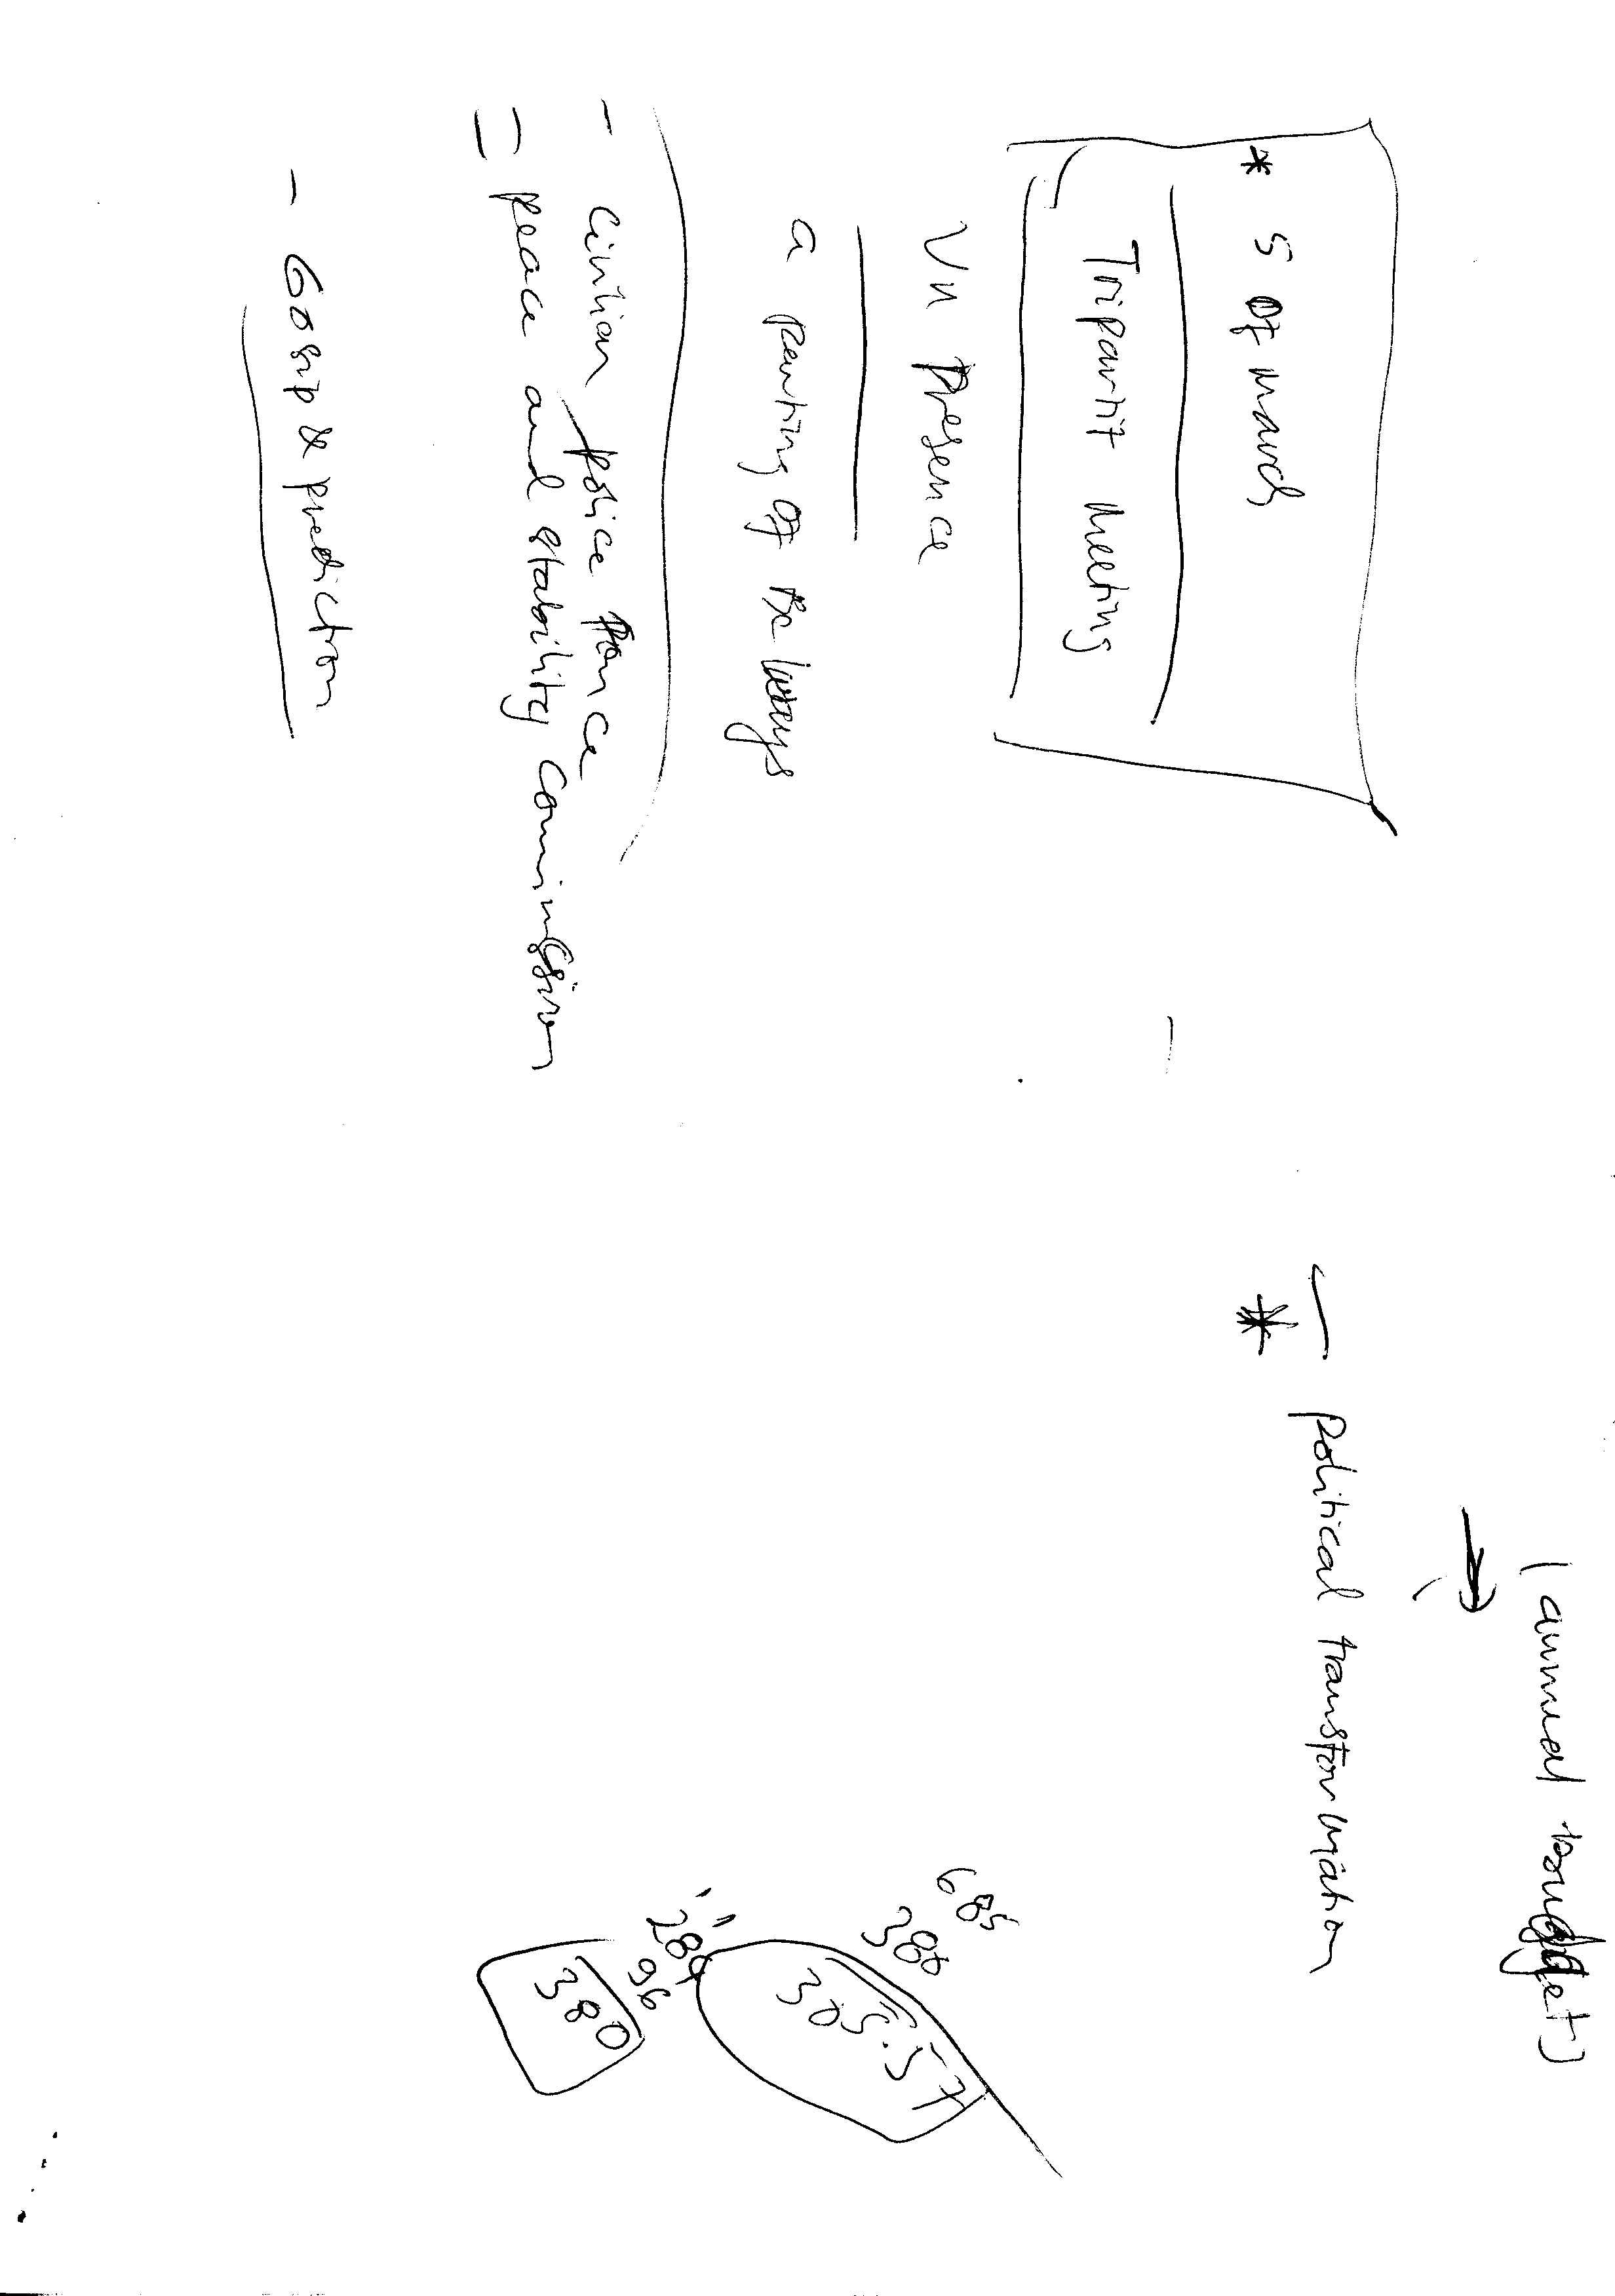 * 5 Of march
Tripartit meeting
Un Presence
a penting Of the
- Civilian police Force
= peace and stability Commission
- Gossip & prediction
(annual boudget)
→
* — political transformation
685
388
305.57
284
96
380